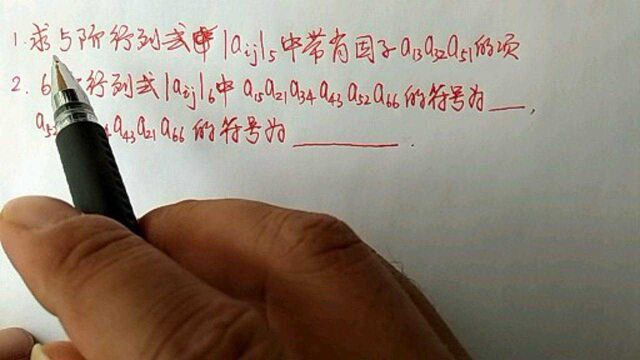 1. 求5阶行列式中|aij|₅中带有因子a₁₃a₃₂a₅₁的项
2. 6 行列式|aij|₆中 a₁₅a₂₁a₃₄a₄₃a₅₂a₆₆的符号为__,
a₅ a₄₃a₂₁a₆₆的符号为______.